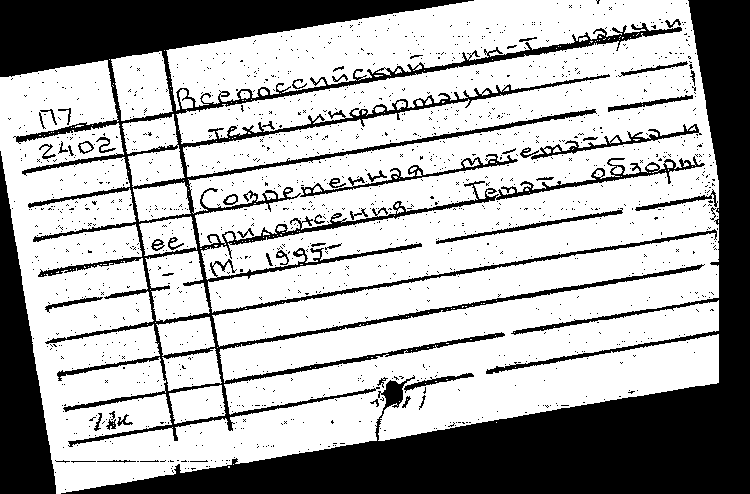 Всероссийский ин-т науч. и
П7
техн. информации
2402
Современная математика и
ее приложения : Темат. обзоры
М., 1995-